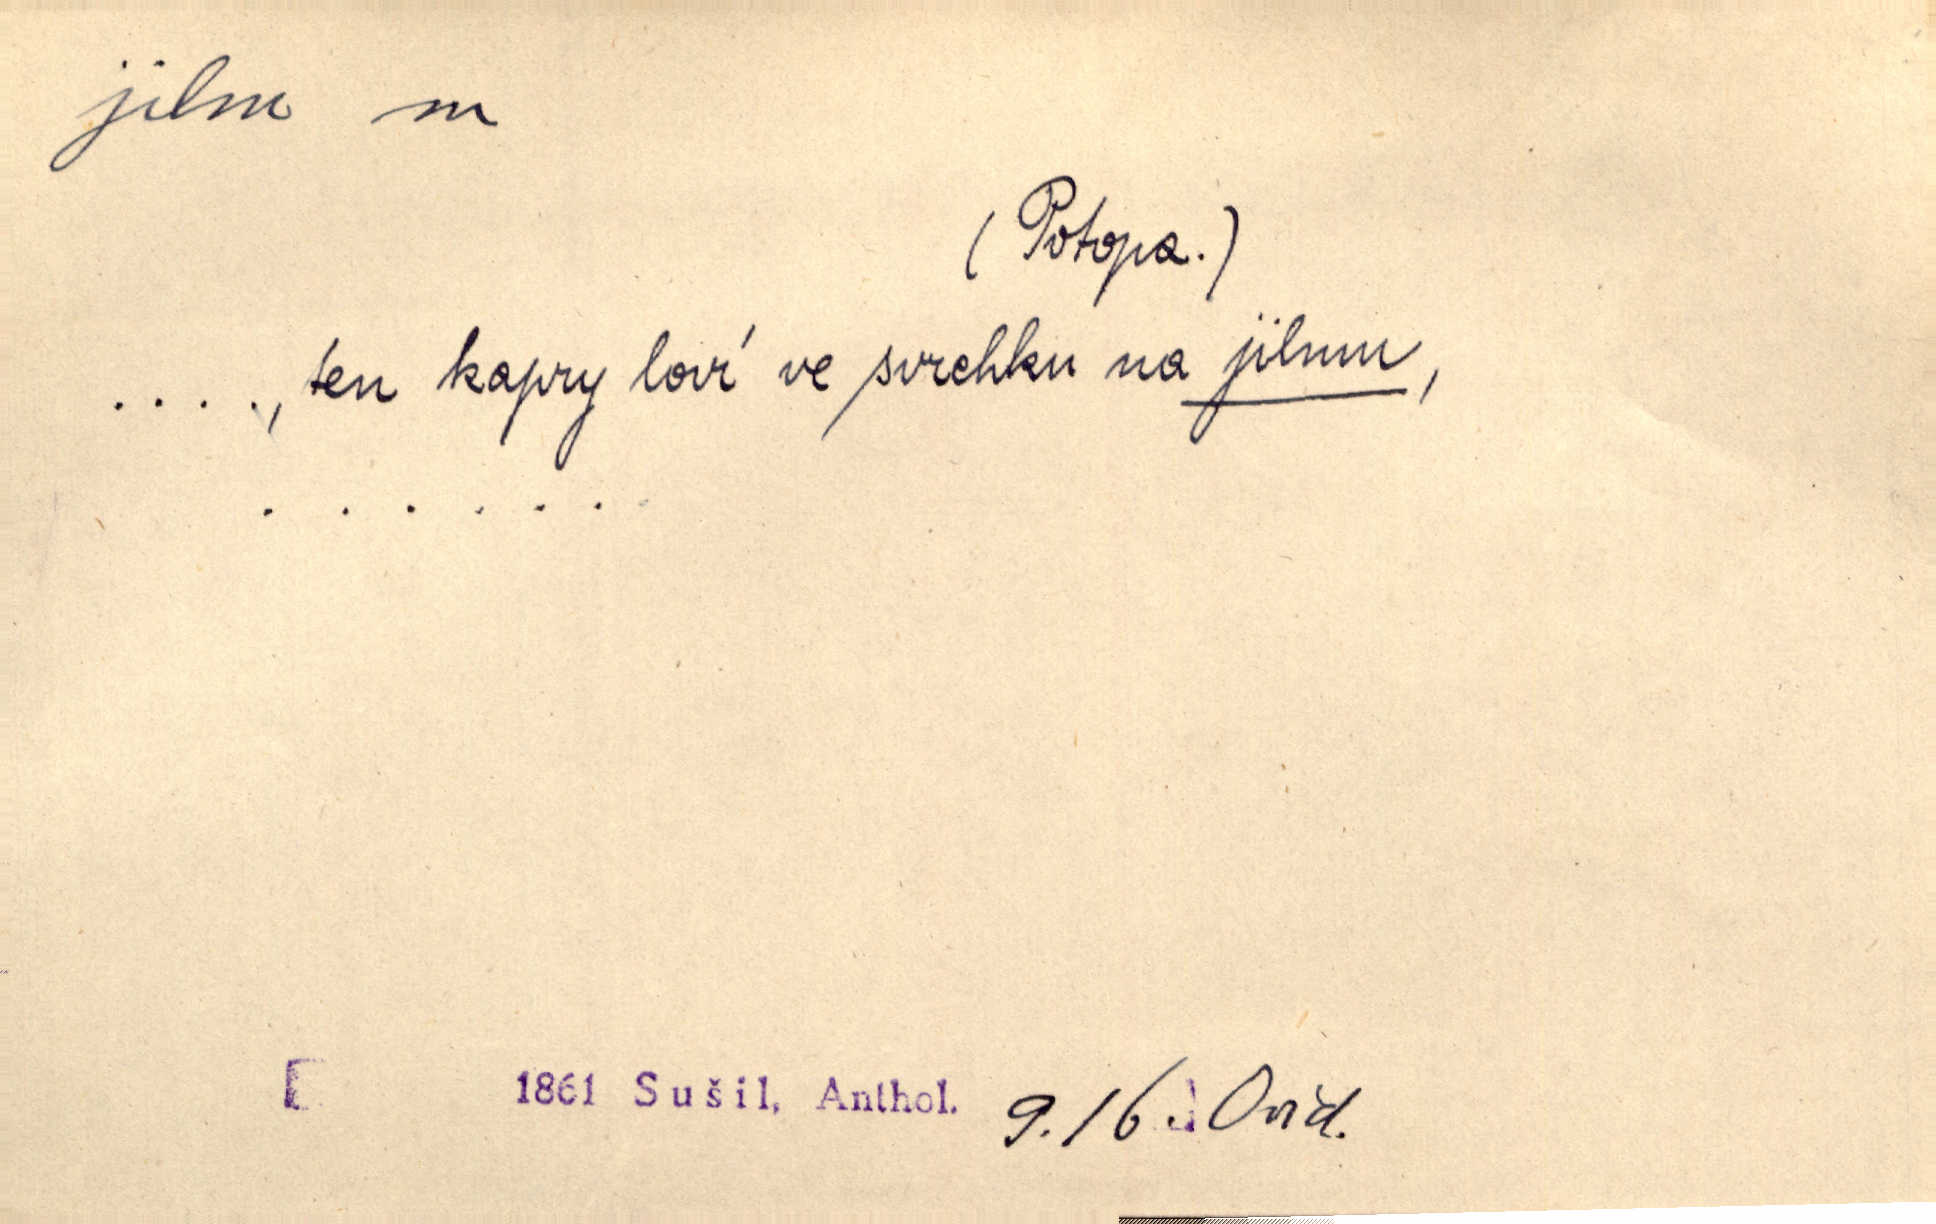 jilm m
(Potopa.)
. . . ., ten kapry loví ve svrchku na jilmu,
. . . . . . .
1861 Sušil, Anthol. 9. 16. Ovid.